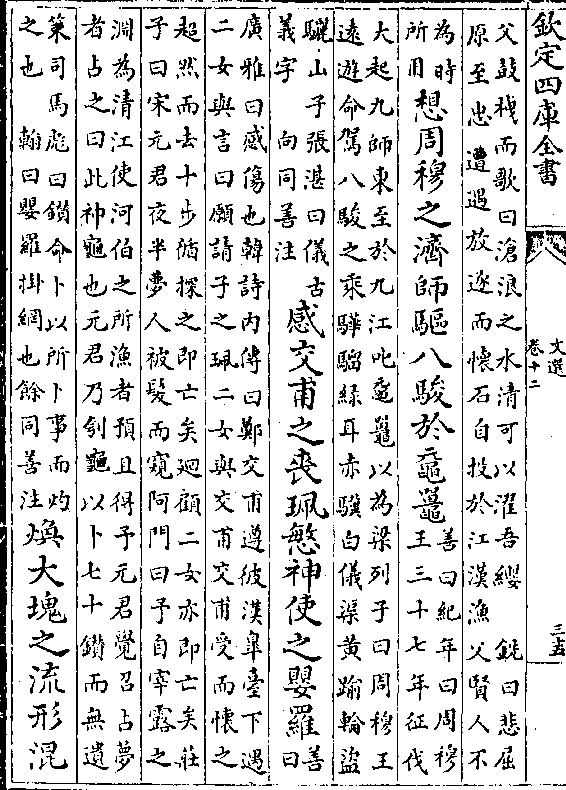 欽定四庫全書
文選
卷十二
三五
父鼓栧而歌曰滄浪之水清可以濯吾纓 銑曰悲屈
原至忠遭遇放逐而懷石自投於江漢漁父賢人不
為時
所用
想周穆之濟師驅八駿於黿鼉
善曰紀年曰周穆
王三十七年征伐
大起九師東至於九江叱黿鼉以為梁列子曰周穆王
遠遊命駕八駿之乘驊騮綠耳赤驥白儀渠黃踰輪盜
驪山子張湛曰儀古
義字 向同善注
感交甫之喪珮愍神使之嬰羅
善
曰
廣雅曰感傷也韓詩內傳曰鄭交甫遵彼漢臯臺下遇
二女與言曰願請子之珮二女與交甫交甫受而懷之
超然而去十步循探之即亡矣迴顧二女亦即亡矣莊
子曰宋元君夜半夢人被髮而窺阿門曰予自宰露之
淵為清江使河伯之所漁者預且得予元君覺召占夢
者占之曰此神龜也元君乃刳龜以卜七十鑽而無遺
策司馬彪曰鑽命卜以所卜事而灼
之也 翰曰嬰羅掛網也餘同善注
煥大塊之流形混